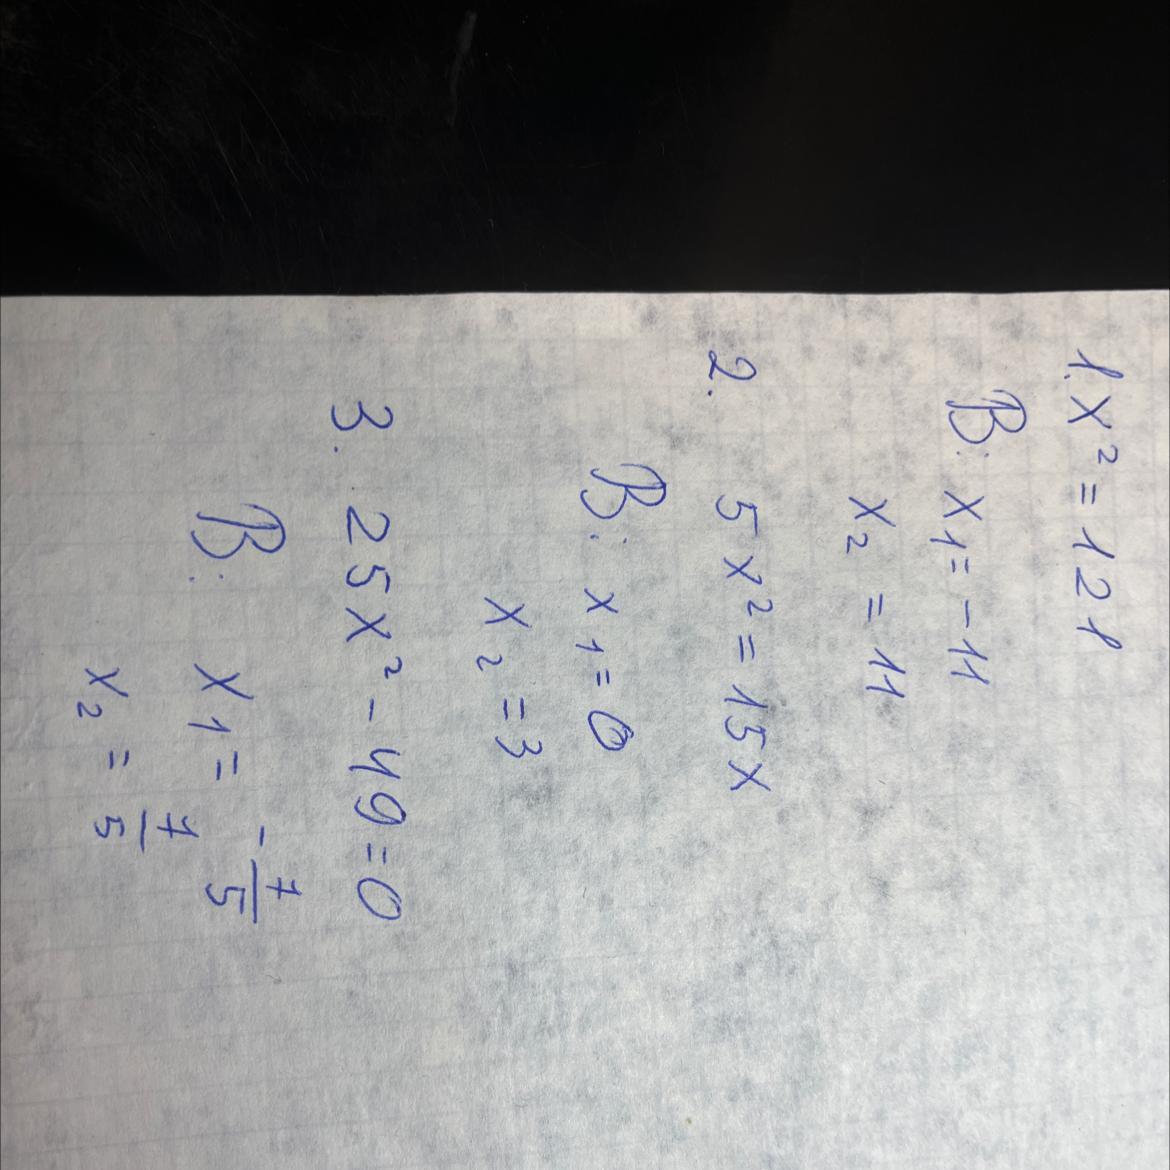 1. x² = 121
В: x₁ = -11
x₂ = 11
2. 5x² = 15x
В: x₁ = 0
x₂ = 3
3. 25x² - 49 = 0
В: x₁ = -7/5
x₂ = 7/5